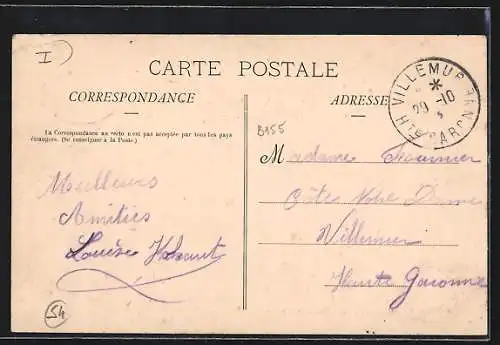 I
CARTE POSTALE
CORRESPONDANCE
La Correspondance au recto n'est pas acceptée par tous les pays
étrangers. (Se renseigner à la Poste.)
Meilleurs
Amitiés
Louise
54
ADRESSE
VILLEMUR
29 -10
HTE GARONNE
B155
Madame Fournier
Côtes Notre Dame
Villemur
Haute Garonne